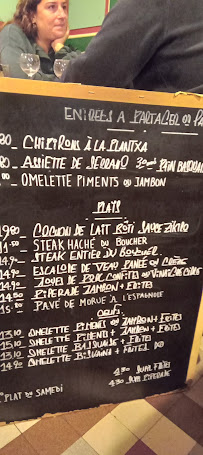 ENTREES A PARTAGER OU PA
80 _ CHIPIRONS À LA PLANTXA
80 _ ASSIETTE DE SERRANO
50 _ OMELETTE PIMENTS OU JAMBON
PLATS
19,80 _ COCHON DE LAIT RÔTI SAUCE ZIKIRO
STEAK HACHÉ DU BOUCHER
14,90 _ STEAK ENTIER DU BOUCHER
14,90 _ ESCALOPE DE VEAU PANÉE OU CRÈME
JOUES DE PORC CONFITES OU VINAIGRE CIDRE
14,50 _ PIPERADE JAMBON + FRITES
PAVÉ DE MORUE À L'ESPAGNOLE
OEUFS
13,10 OMELETTE PIMENTS OU JAMBON + FRITES
15,10 OMELETTE PIMENTS + JAMBON + FRITES
13,10 OMELETTE BASQUAISE + FRITES
OMELETTE BASQUAISE + FRITES
4,30 SUPP FRITES
4,30 SUPP PIPERADE
PLAT DU SAMEDI